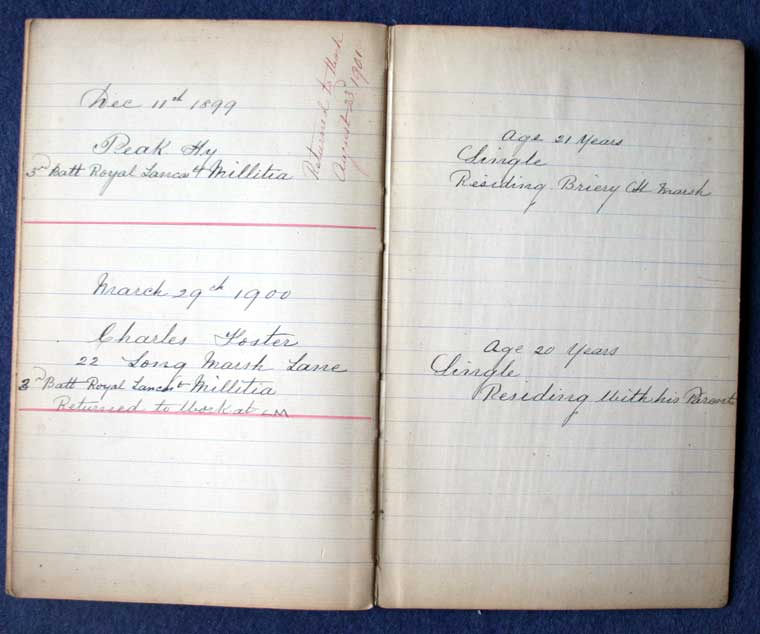 Dec 11th 1899
Returned to Work
August 23 1901
Peak Hy
3rd Batt Royal Lancastr Millitia
March 29th 1900
Charles Foster
22 Long Marsh Lane
3rd Batt Royal Lancastr Millitia
Returned to Work at LM
Age 21 Years
Single
Residing Briery Marsh
Age 20 Years
Single
Residing With his Parents